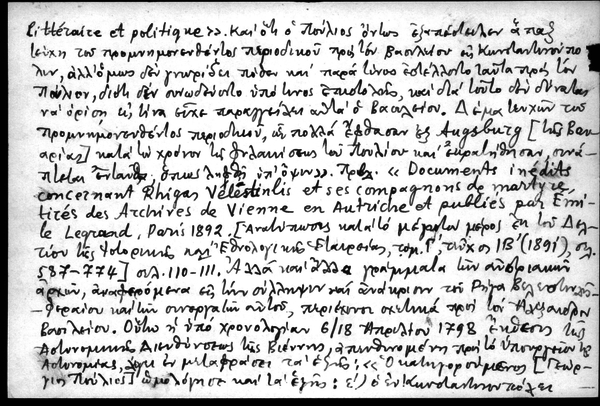 Littéraire et politique». Καὶ ὅτι ὁ Πούλιος ὄντως ἐξαπέστειλεν ἅπαξ
τεύχη τοῦ προμνημονευθέντος περιοδικοῦ πρὸς τὸν Βασιλείου εἰς Κωνσταντινούπο
λιν, ἀλλ' ὅμως δὲν γνωρίζει πόθεν καὶ παρὰ τίνος ἐστέλλοντο ταῦτα πρὸς τὸν
Πούλιον, διότι δὲν συνωδεύοντο ὑπό τινος ἐπιστολῆς, καὶ διὰ τοῦτο δὲν δύναται
νὰ ὁρίσῃ εἰς τίνα εἶχε παραγγείλει αὐτὰ ὁ Βασιλείου. Δέμα τευχῶν τοῦ
προμνημονευθέντος περιοδικοῦ, ὡς πολλὰ ἔφθασαν ἐξ Augsburg [τῆς Βαυ
αρίας] κατὰ τὸν χρόνον τῆς φυλακίσεως τοῦ Πουλίου καὶ ἐκρατήθησαν, συνά
πτεται ἐνταῦθα, ὅπως ληφθῇ ὑπ' ὄψιν». Πρβλ. «Documents inédits
concernant Rhigas Vélestinlis et ses compagnons de martyre
tirés des Archives de Vienne en Autriche et publiés par Emi-
le Legrand, Paris 1892. [Ἀνατύπωσις κατὰ τὸ μέγιστον μέρος ἐκ τοῦ Δελ-
τίου τῆς Ἱστορικῆς καὶ Ἐθνολογικῆς Ἑταιρείας, τόμ. Γ' τεῦχος ΙΒ' (1891), σελ.
587-774] σελ. 110-111. Ἀλλὰ καὶ ἄλλα γράμματα τῶν αὐστριακῶν
ἀρχῶν, ἀναφερόμενα εἰς τὴν σύλληψιν καὶ ἀνάκρισιν τοῦ Ρήγα Βελεστινλῆ-
Φεραίου καὶ τῶν συνεργατῶν αὐτοῦ, περιέχουσι σχετικὰ πρὸς τὸν Ἀλέξανδρον
Βασιλείου. Οὕτω ἡ ὑπὸ χρονολογίαν 6/18 Ἀπριλίου 1798 ἔκθεσις τῆς
Ἀστυνομικῆς Διευθύνσεως τῆς Βιέννης, ἀπευθυνομένη πρὸς τὸ Ὑπουργεῖον τῆς
Ἀστυνομίας, ἐν μεταφράσει τὰ ἑξῆς: «Ὁ κατηγορούμενος [Γεώρ-
γιος Πούλιος] ὡμολόγησε καὶ τὰ ἑξῆς: ε') ὁ ἐν Κωνσταντινουπόλει